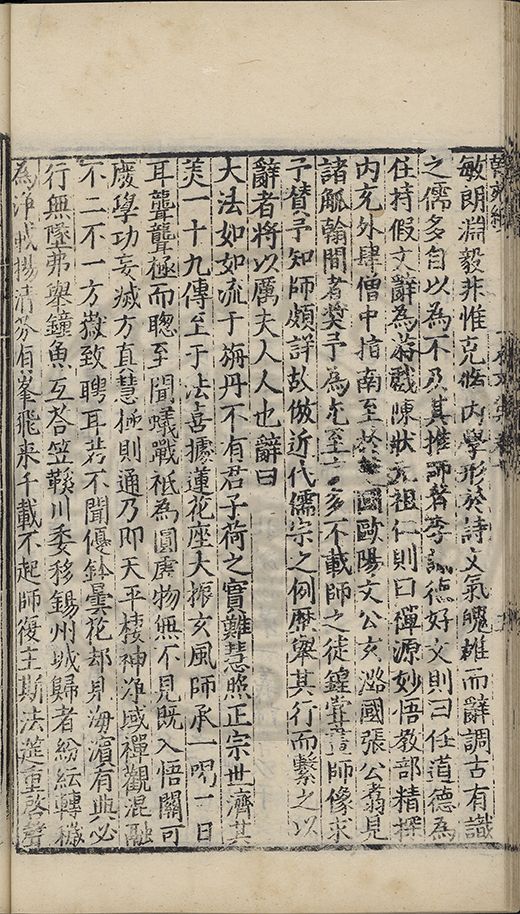 敏朗淵毅非惟克俻內學形於詩文氣魄雄而辭調古有識
之儒多自以為不及其推師馨秀誠德好文則曰任道德為
住持假文辭為游戲陳狀元祖仁則曰禪源妙悟教部精探
內充外肆僧中指南至於國歐陽文公玄潞國張公翥見
諸觚翰間者奬予為尤至言多不載師之徒鏜葺師像求
予賛予知師頗詳故倣近代儒宗之例歷舉其行而繫之以
辭者將以厲夫人人也辭曰
大法如如流于旃丹不有君子荷之實難慧照正宗世濟其
美一十九傳至于法喜據蓮花座大振玄風師承一喝一日
耳聾聾極而聦至聞蟻戰衹為圓虛物無不見既入悟關可
廢學功妄滅方直慧極則通乃即天平棲神淨域禪觀混融
不二不一方嶽致聘耳若不聞優鉢曇花却見海濵有典必
行無墜弗舉鐘魚互荅笠䩞川委移錫州城歸者紛紜轉穢
為淨載揚清芬有峯飛来千載不起師復主斯法筵重啓聲